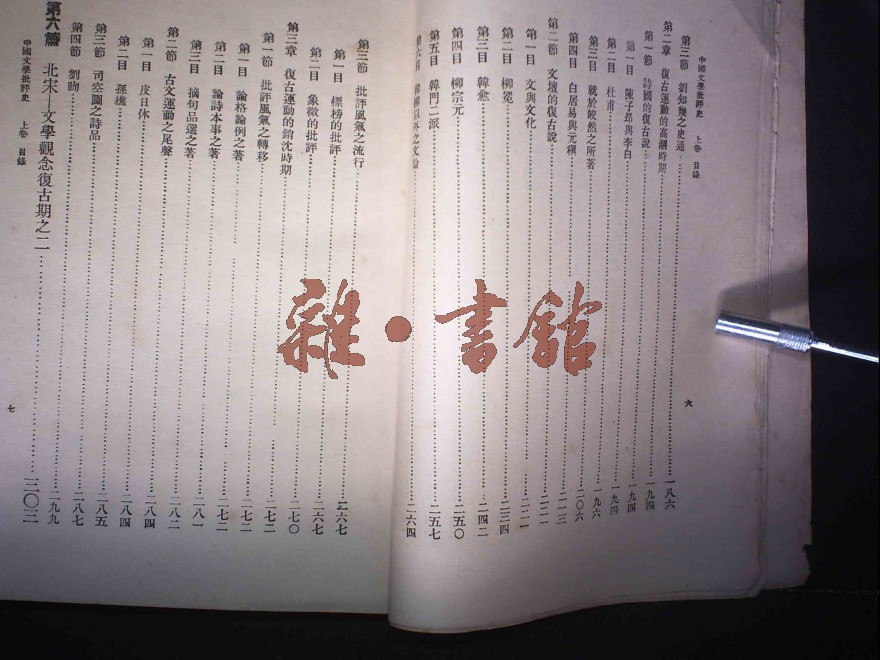 中國文學批評史 上卷 目錄
第三節 劉知幾之史通 一八六
第二章 復古運動的高潮時期 一九四
第一節 詩國的復古說 一九四
第一目 陳子昂與李白 一九四
第二目 杜甫 一九六
第三目 皎然之所著
第四目 白居易與元稹 二〇六
第二節 文壇的復古說 二一三
第一目 文與文化 二二一
第二目 柳冕 二三四
第三目 韓愈 二四二
第四目 柳宗元 二五〇
第五目 韓門二派 二五七
第六目 韓柳以外之文論 二六四
六
第三節 批評風氣之流行 二六七
第一目 標榜的批評 二六七
第二目 象徵的批評 二六七
第三章 復古運動的銷沈時期 二七〇
第一節 批評風氣之轉移 二七二
第一目 論格論例之著 二七二
第二目 論詩本事之著 二七二
第三目 摘句品選之著 二八一
第二節 古文運動之尾聲 二八二
第一目 皮日休 二八四
第二目 孫樵 二八四
第三節 司空圖之詩品 二八五
第四節 劉昫 二八七
第六篇 北宋—文學觀念復古期之二 三〇二
中國文學批評史 上卷 目錄
七
雜·書館